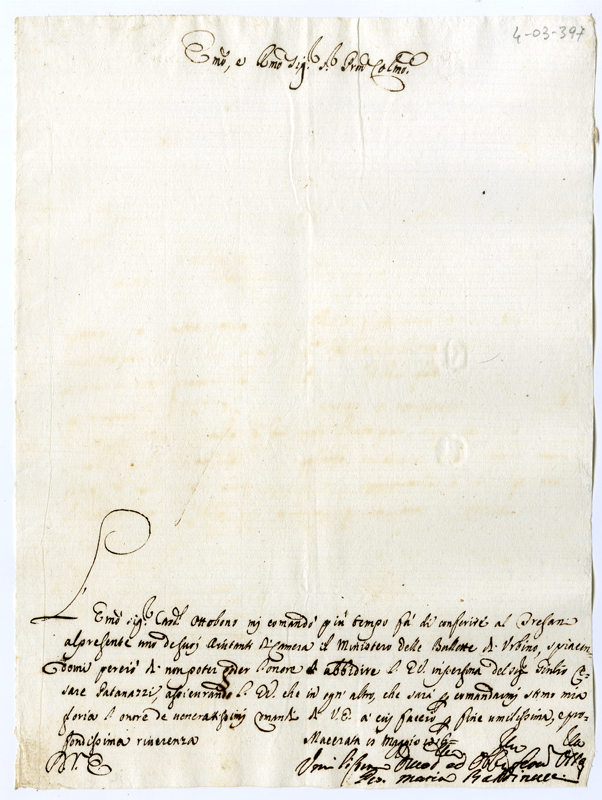 4-03-397
Emo, e Rmo Sig.r Prne Colmo
L' Emo Sig.r Card.l Ottobono mi comandò più tempo fà di conferire al Tresani
al presente uno de suoi Aiutanti di Camera il Ministero delle Bullette di Urbino, spiacen
domi perciò di non poter goder l'onore di obbedire l' E.V. in persona del Sig.r Giulio Ce
sare Patanazzi, assicurando l' E.V. che in ogn' altro, che sarà per comandarmi stimo mia
gloria l' onore de veneratissimi comandi di V.E. a cui faccio per fine umilissima, e pro
fondissima riverenza Macerata 10 Maggio
D. V. E.
Umi Devot ed Obb Serv
Maria